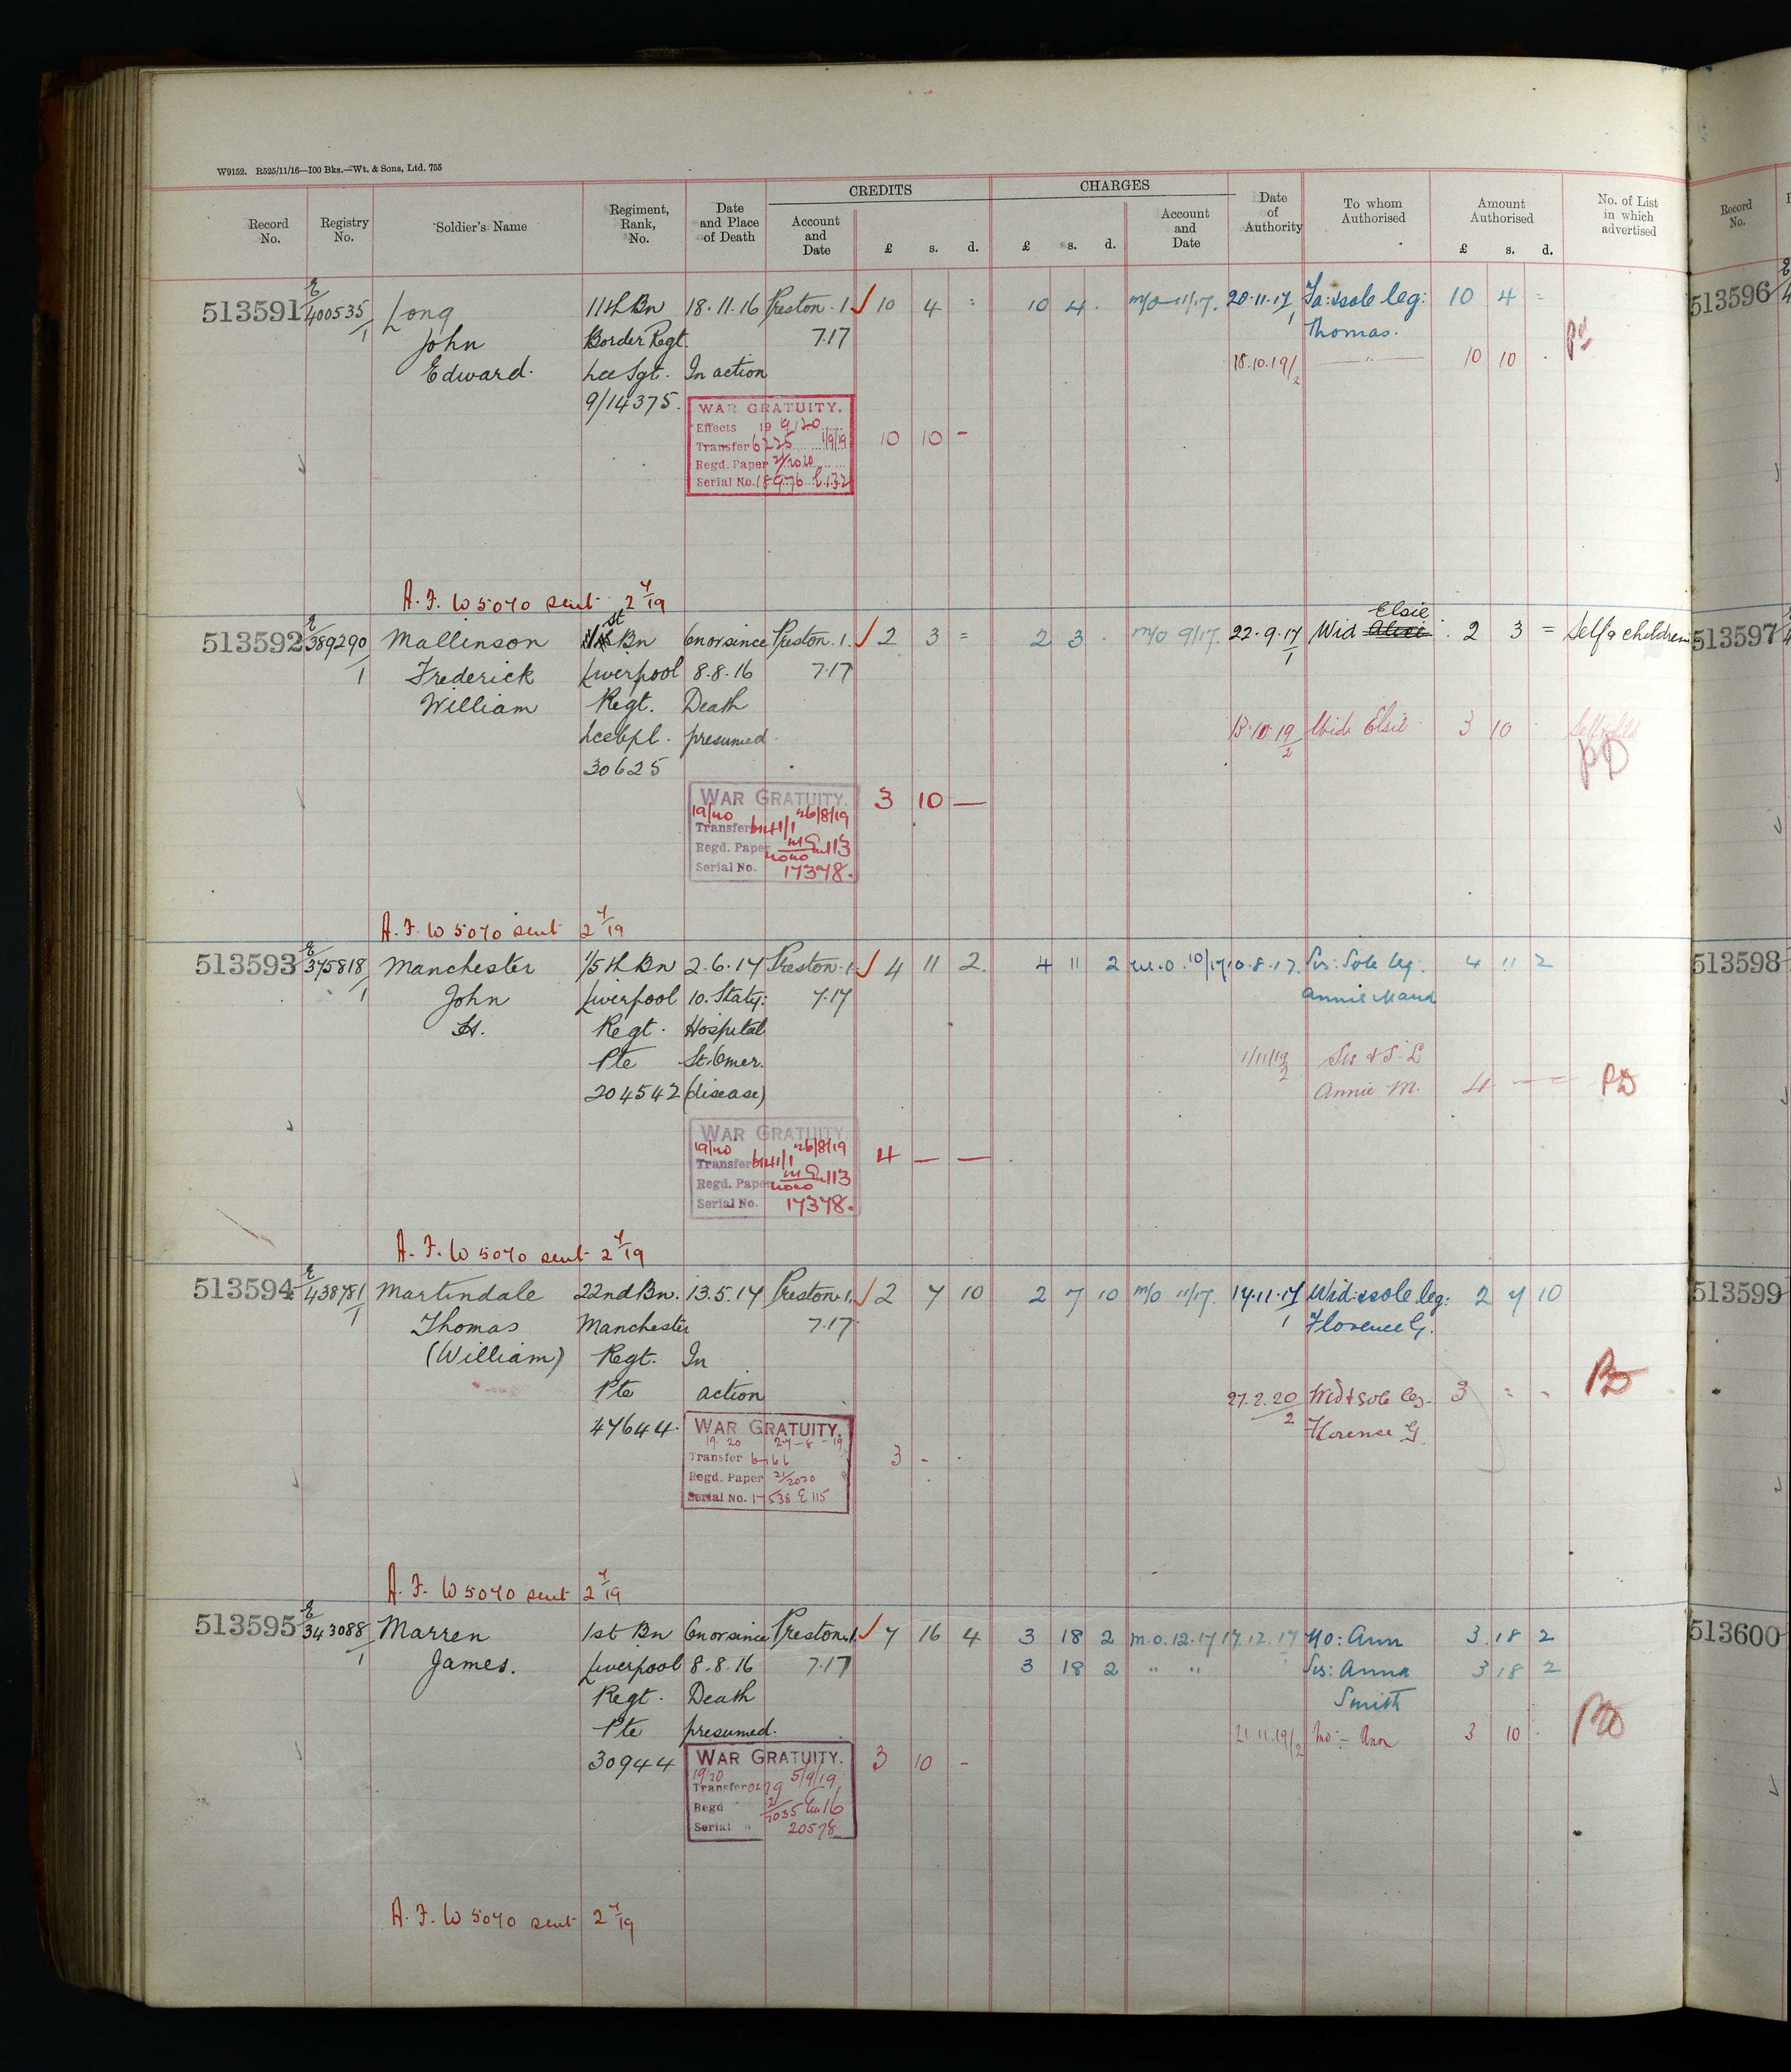 W9152. R525/11/16—100 Bks.—Wt. & Sons, Ltd. 755
CREDITS CHARGES
Record No. Registry No. Soldier's Name Regiment, Rank, No. Date and Place of Death Account and Date £ s. d. £ s. d. Account and Date Date of Authority To whom Authorised Amount Authorised £ s. d. No. of List in which advertised Record No.
513591 E/400535/1 Long 11th Bn 18.11.16 Preston.1. 10 4 = 10 4 . M/O 11/17. 20.11.17/1 Fa: & sole leg: 10 4 = 513596
John Border Regt. 7.17 Thomas.
Edward. Lce Sgt. In action 18.10.19/2 — " — 10 10 .
9/14375.
WAR GRATUITY.
Effects 19 9/20
Transfer 6225 1/9/19 10 10 -
Regd. Paper 2/2020
Serial No. 18976 E.132
A.F. W 5070 sent 2/7/19
513592 E/389290/1 Mallinson 1st Bn On or since Preston.1. 2 3 = 2 3 . M/O 9/17. 22.9.17/1 Wid Elsie 2 3 = Self & children 513597
Frederick Liverpool 8.8.16 7.17
William Regt. Death
Lce Cpl. presumed. 13.10.19/2 Wid: Elsie 3 10 .
30625 PD
WAR GRATUITY. 3 10 —
19/20 26/8/19
Transfer 6141/1
Regd. Paper 113
Serial No. 17378.
A.F. W 5070 sent 2/7/19
513593 E/375818/1 Manchester 1/5th Bn 2.6.17 Preston.1. 4 11 2. 4 11 2 M.O. 10/17 10.8.17. Sis: Sole leg: 4 11 2 513598
John Liverpool 10. Staty: 7.17 Annie Maud
H. Regt. Hospital
Pte St. Omer. 1/11/19/2 Sis & S. L
204542 (disease) Annie M. 4 — = PD
WAR GRATUITY.
19/20 26/8/19
Transfer 6141/1 4 — —
Regd. Paper 113
Serial No. 17378.
A.F. W 5070 sent 2/7/19
513594 E/438781/1 Martindale 22nd Bn. 13.5.17 Preston.1. 2 7 10 2 7 10 M/O 11/17. 14.11.17/1 Wid: & sole leg: 2 7 10 513599
Thomas Manchester 7.17 Florence G.
(William) Regt. In
Pte action 27.2.20/2 Wid & sole leg. 3 = - PD
47644. Florence G.
WAR GRATUITY.
19.20 27-8-19
Transfer 6166 3 - .
Regd. Paper 21/2020
Serial No. 17538 E 115
A.F. W 5070 sent 2/7/19
513595 E/343088/1 Marren 1st Bn On or since Preston.1. 7 16 4 3 18 2 M.O. 12.17 17.12.17 Mo: Ann 3 18 2 513600
James. Liverpool 8.8.16 7.17 3 18 2 " " Sis: Anna 3 18 2
Regt. Death Smith
Pte presumed. 21.11.19/2 Mo:- Ann 3 10 . PD
30944 3 10 -
WAR GRATUITY.
19/20 5/9/19
Transfer
Regd 21/2035 16
Serial 20578
A.F. W 5070 sent 2/7/19